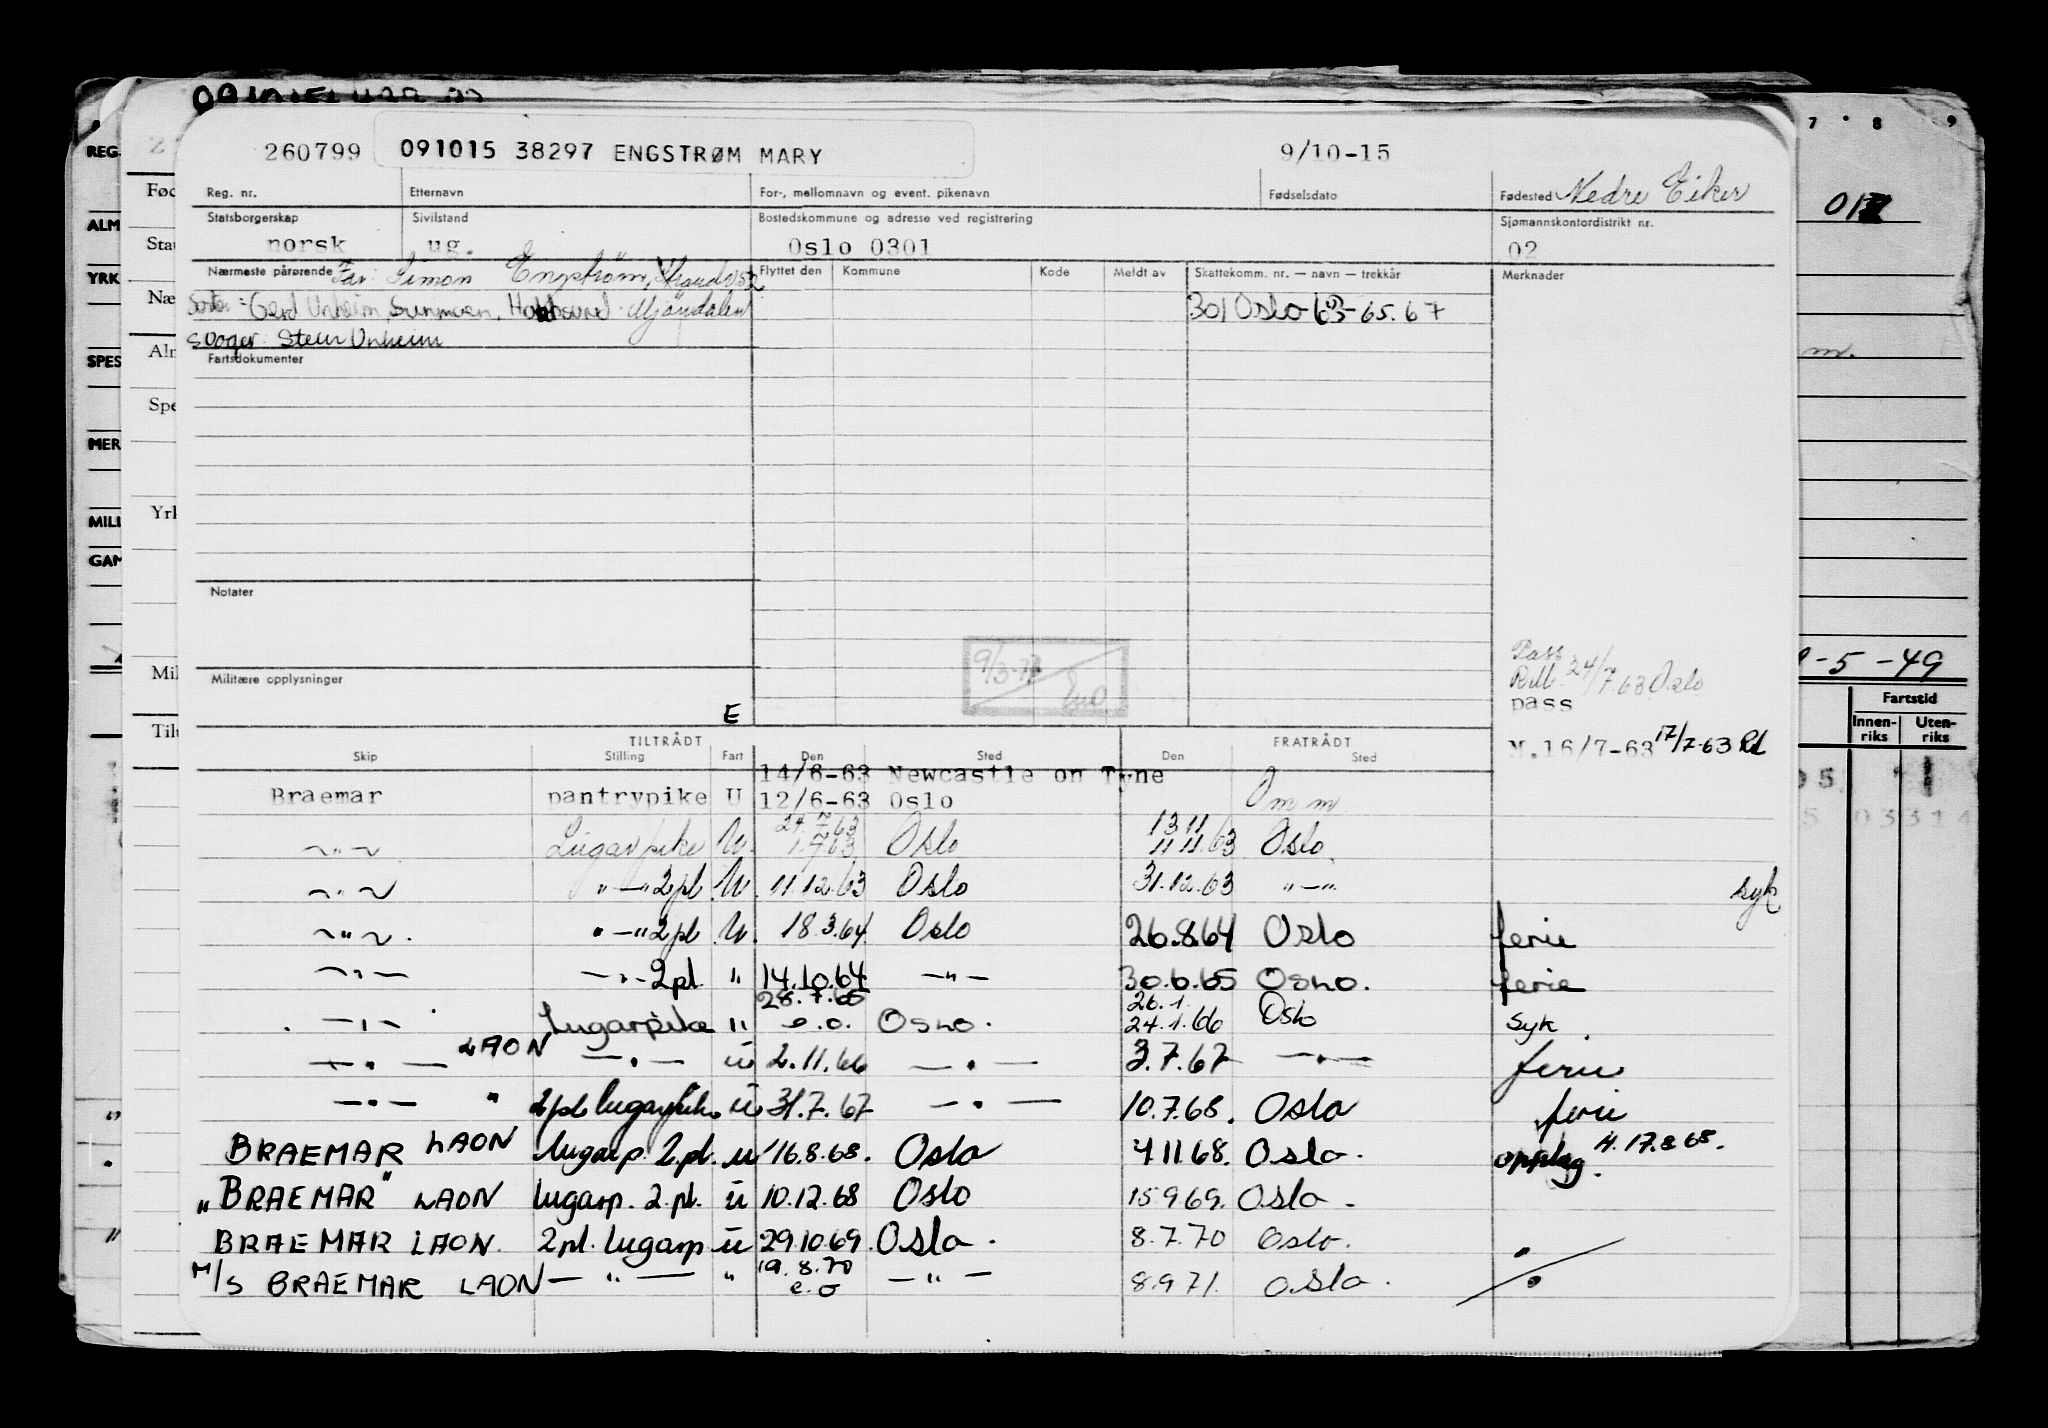 260799 091015 38297 ENGSTRØM MARY 9/10-15
Reg. nr. Etternavn For-, mellomnavn og event. pikenavn Fødselsdato Fødested Nedre Eiker
Statsborgerskap Sivilstand Bostedskommune og adresse ved registrering Sjømannskontordistrikt nr.
norsk ug. Oslo 0301 02
Nærmeste pårørende Far: Simon Engström, Flyttet den Kommune Kode Meldt av Skattekomm. nr. — navn — trekkår Merknader
Gerd Unheim, Mjöndalen 301 Oslo 65. 67
Svoger: Stein Unheim
Fartsdokumenter
Notater
Pass
24/7.63 Oslo
Militære opplysninger
pass
E
M.16/7-63 17/7-63
TILTRÅDT FRATRÅDT
Skip Stilling Fart Den Sted Den Sted
14/6-63 Newcastle on Tyne
Braemar pantrypike U 12/6-63 Oslo Omm
24. 7 63 13 11
~"~ Lugarpike U. 1.7 63 Oslo 11 11.63 Oslo
~"~ "—" 2pl U. 11.12.63 Oslo 31.12.63 "—" syk
~"~ "—" 2pl U. 18.3.64 Oslo 26.8.64 Oslo ferie
—"— —"— 2pl. " 14.10.64 —"— 30.6.65 Oslo. ferie
28.7.65 26.1.
—"— Lugarpike " e.o. Oslo. 24.1.66 Oslo syk
—"— LAON —"— u 2.11.66 —"— 3.7.67 —"— ferie
—"— " 2pl lugarpike u 31.7.67 —"— 10.7.68. Oslo ferie
BRAEMAR LAON lugarp. 2.pl. u 16.8.68. Oslo 4 11 68. Oslo. opplag. H. 17.8.68.
"BRAEMAR" LAON lugarp. 2.pl. u 10.12.68 Oslo 15 9 69. Oslo.
BRAEMAR LAON. 2pl. lugarp u 29.10.69. Oslo. 8.7.70 Oslo.
19.8.70
M/S BRAEMAR LAON —"— " e.o —"— 8.9 71. Oslo.
REG.
ALM
YRK
SPES
MER
MILI
GAM
Fød
Stat
Næ
Alm
Spe
Yrk
Mil
Tilt
7 8 9
-5-49
Fartstid
Innen-riks Uten-riks